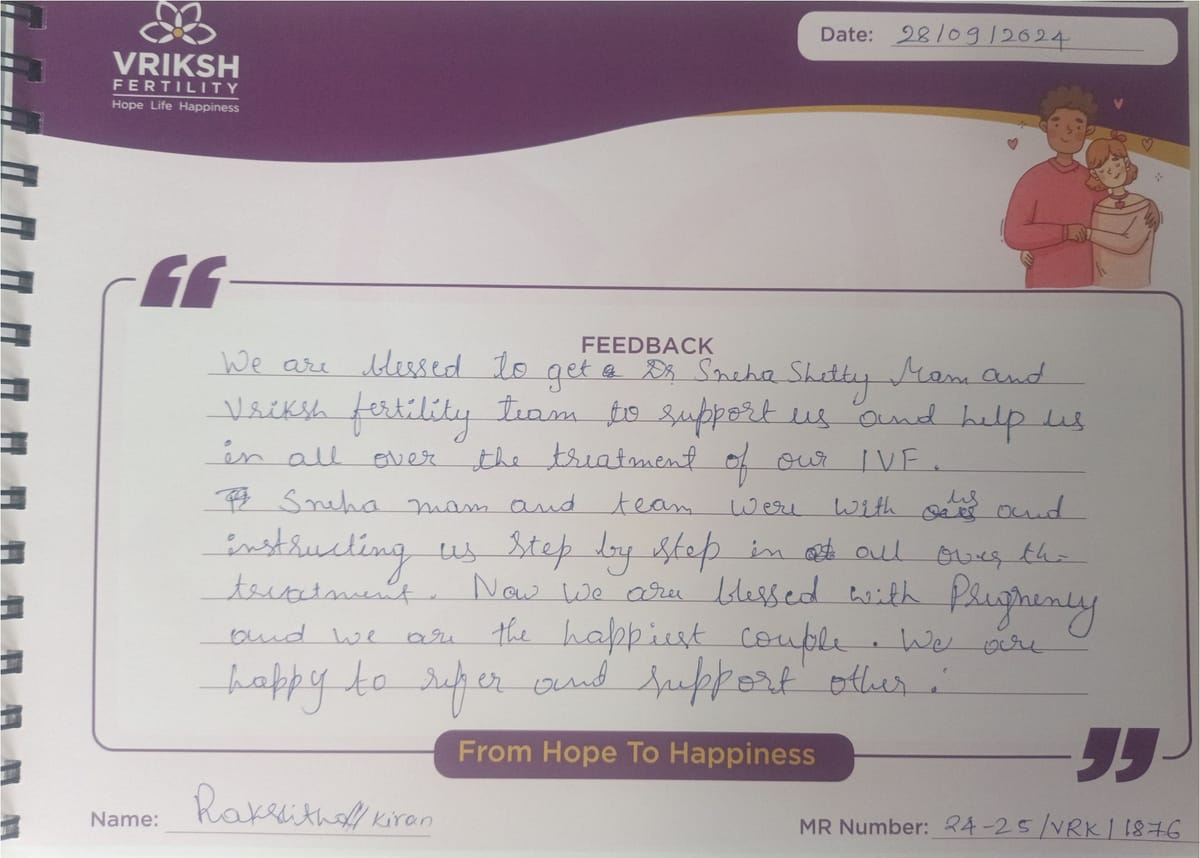 VRIKSH
FERTILITY
Hope Life Happiness
Date: 28/09/2024
FEEDBACK
We are blessed to get Dr Sneha Shetty Mam and
Vriksh fertility team to support us and help us
in all over the treatment of our IVF.
Sneha mam and team were with us and
instructing us step by step in all over the
treatment. Now we are blessed with Preghency
and we are the happiest couple. We are
happy to refer and support other.
From Hope To Happiness
Name: Kiran
MR Number: 24-25/VRK/1876